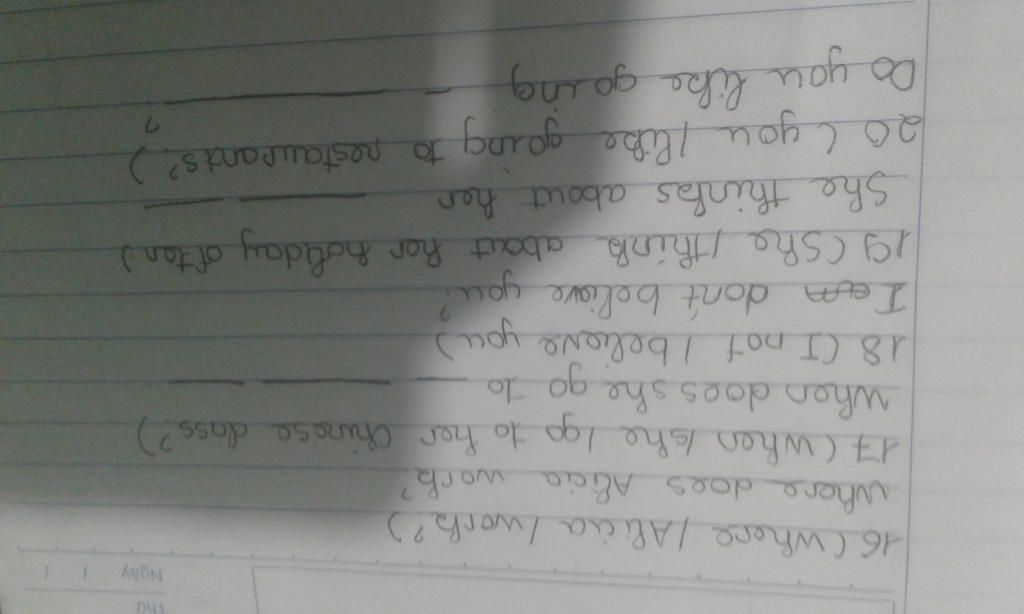 Thứ
Ngày / /
16 (Where / Alicia / work?)
Where does Alicia work?
17 (When / she / go to her Chinese class?)
When does she go to __ __ __
18 (I not / believe you)
I don't believe you?
19 (She / think about her holiday often)
She thinks about her __ __
20 (you / like going to restaurants?)
Do you like going _ __ ?